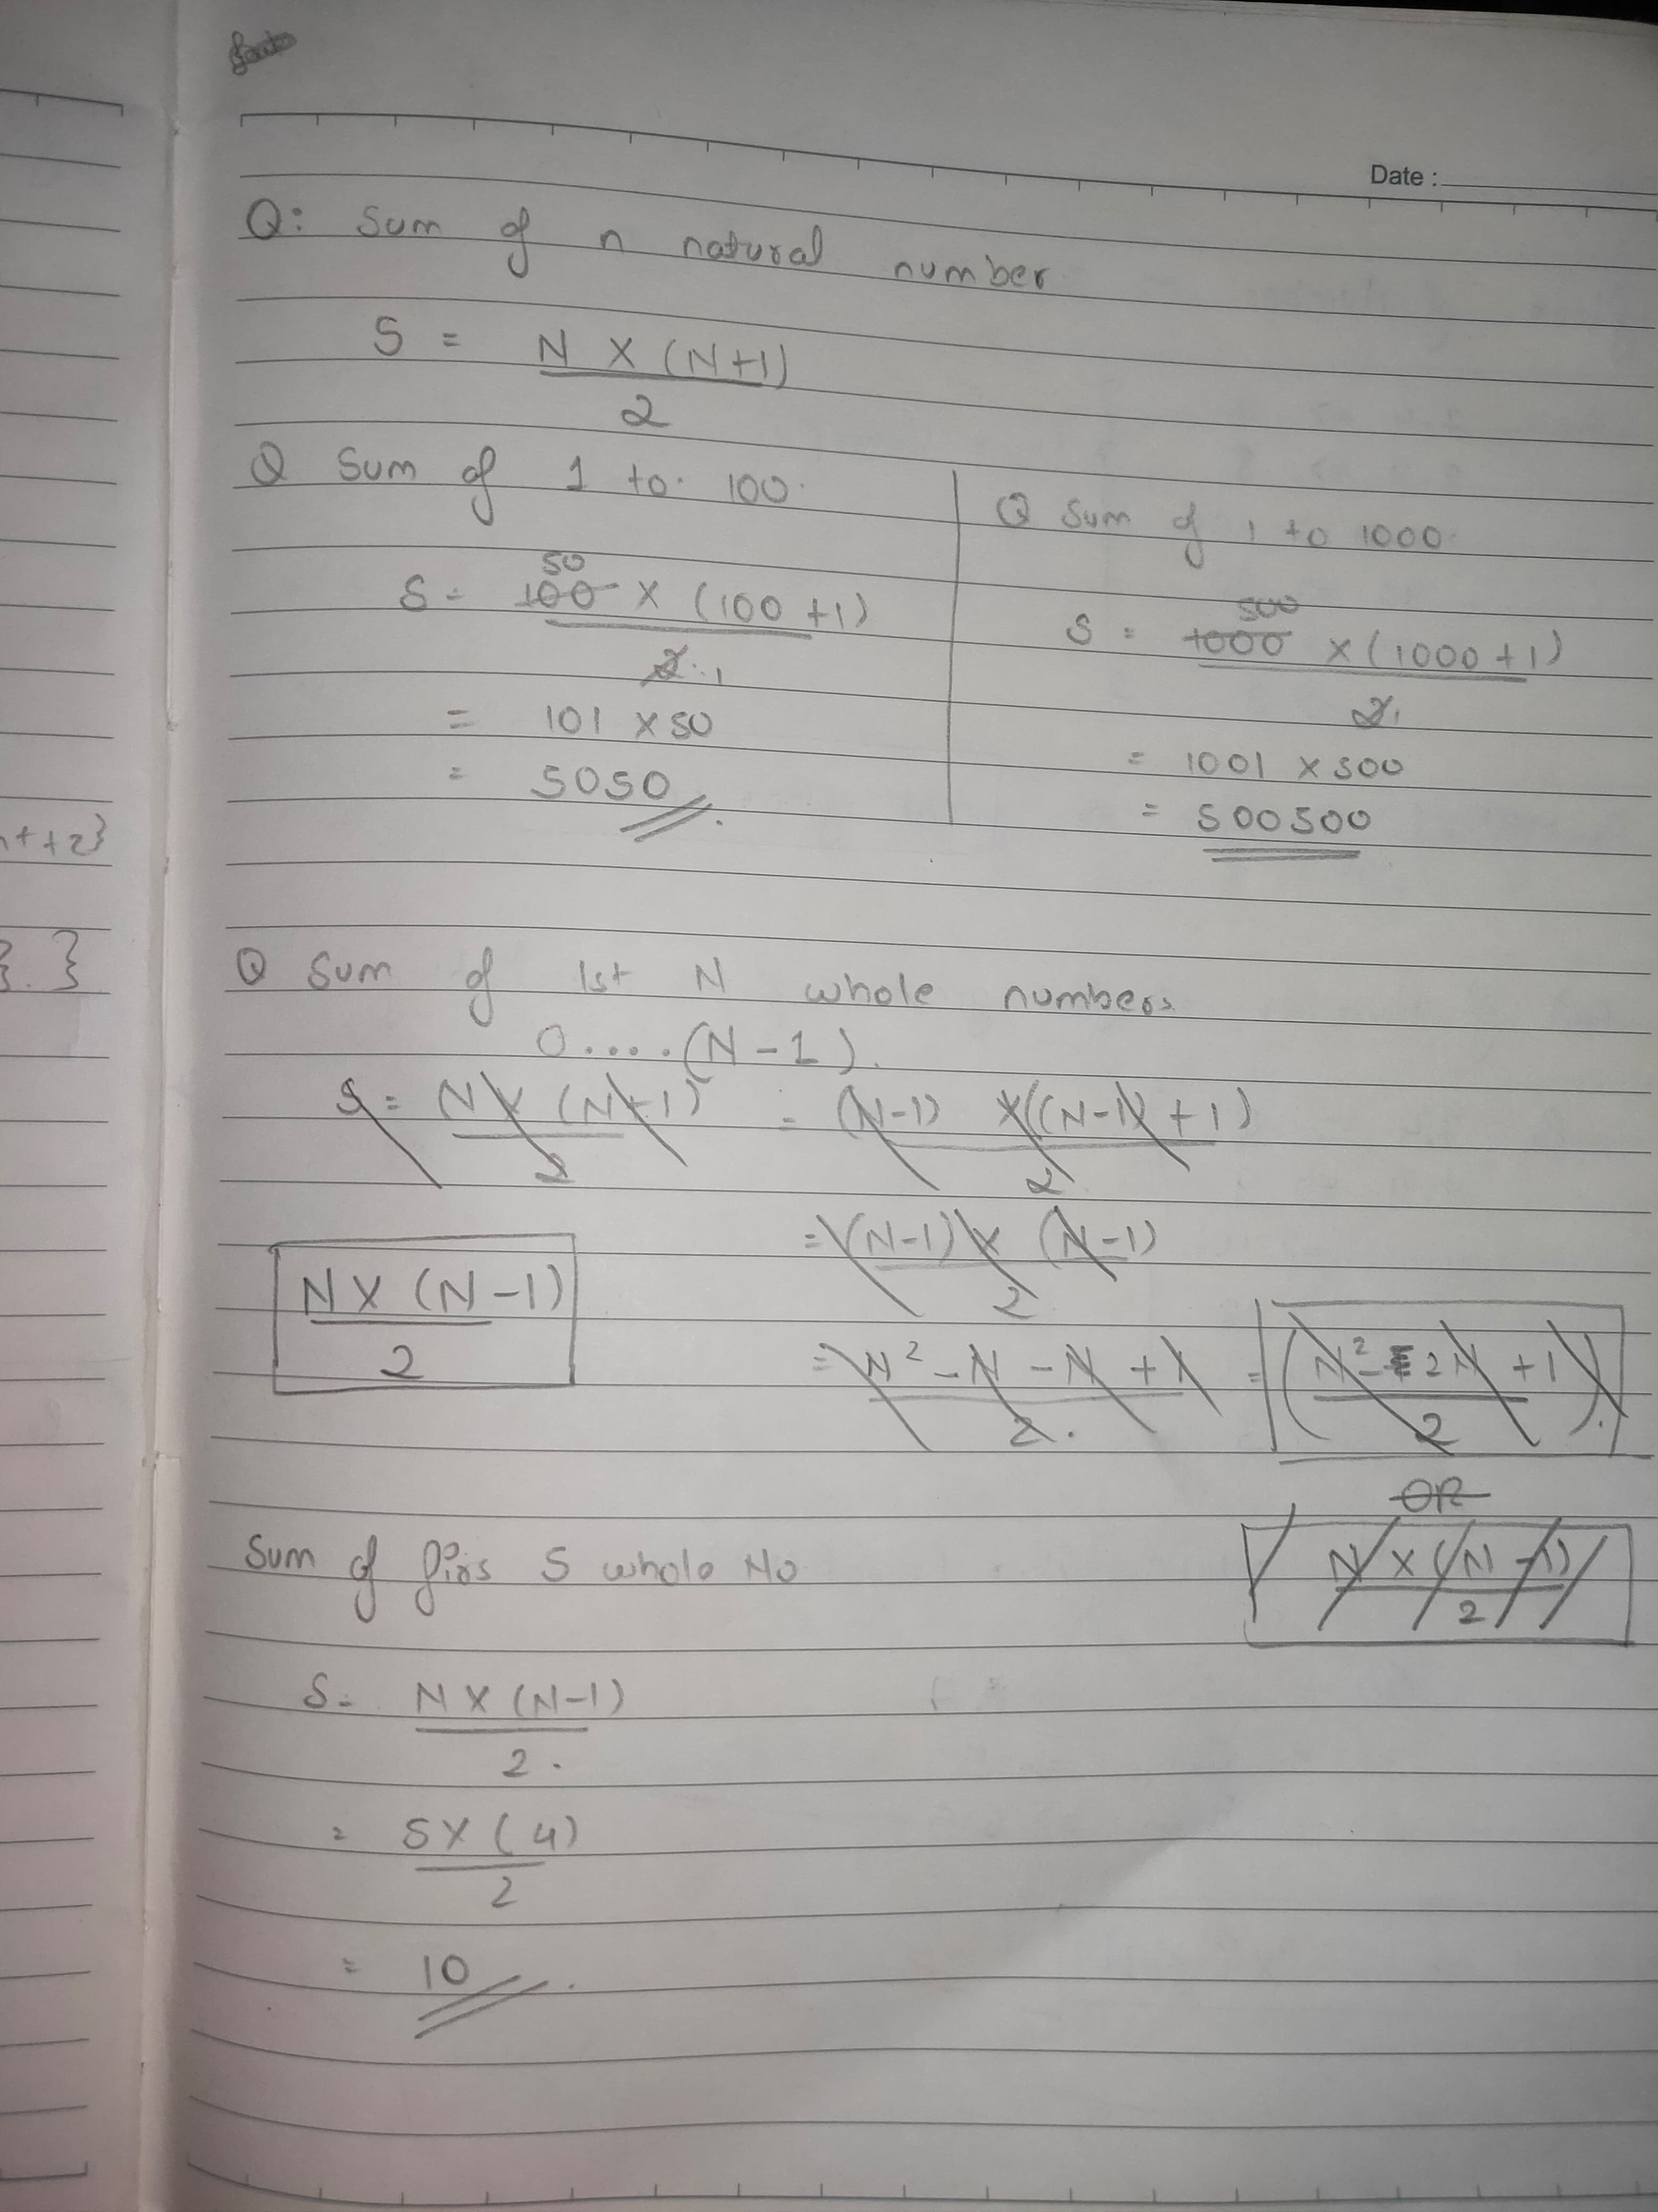 Date :
Q: Sum of n natural number
S = N X (N+1)
2
Q Sum of 1 to 100.
50
S = 100 X (100 + 1)
2 1
= 101 X 50
= 5050
Q Sum of 1 to 1000
500
S = 1000 X (1000 + 1)
2 1
= 1001 X 500
= 500500
Q Sum of 1st N whole numbers
0....(N-1).
S = N X (N+1) = (N-1) X ((N-1) + 1)
2 2
= (N-1) X (N-1)
2
N X (N-1)
2
= N² - N - N + 1 = (N² - 2N + 1).
2. 2
OR
N X (N-1)
2
Sum of firs 5 whole No
S = N X (N-1)
2.
= 5 X (4)
2
= 10
++2}
}.}